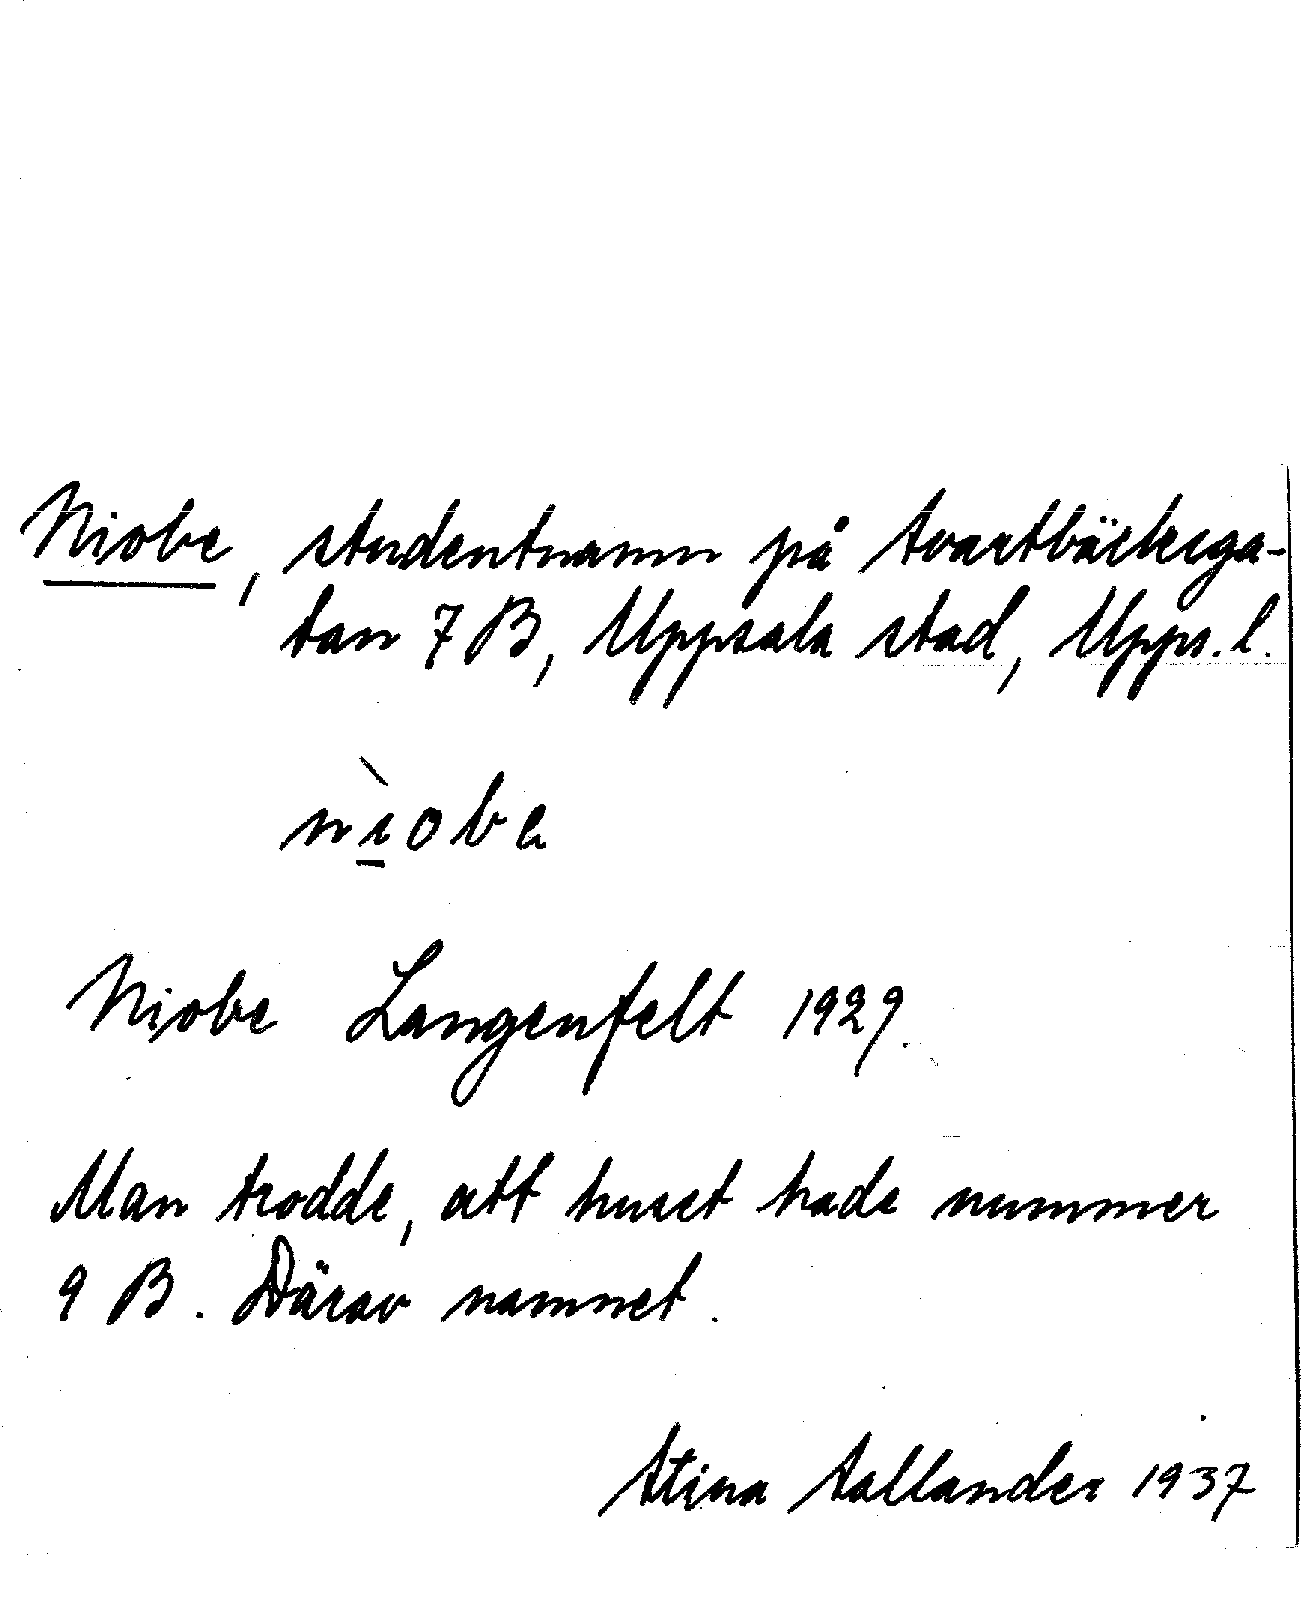 Niobe, studentnamn på Svartbäcksga-
tan 7 B, Uppsala stad, Upps. l.
nìobe
Niobe Langenfelt 1929.
Man trodde, att huset hade nummer
9 B. Därav namnet.
Stina Sallander 1937